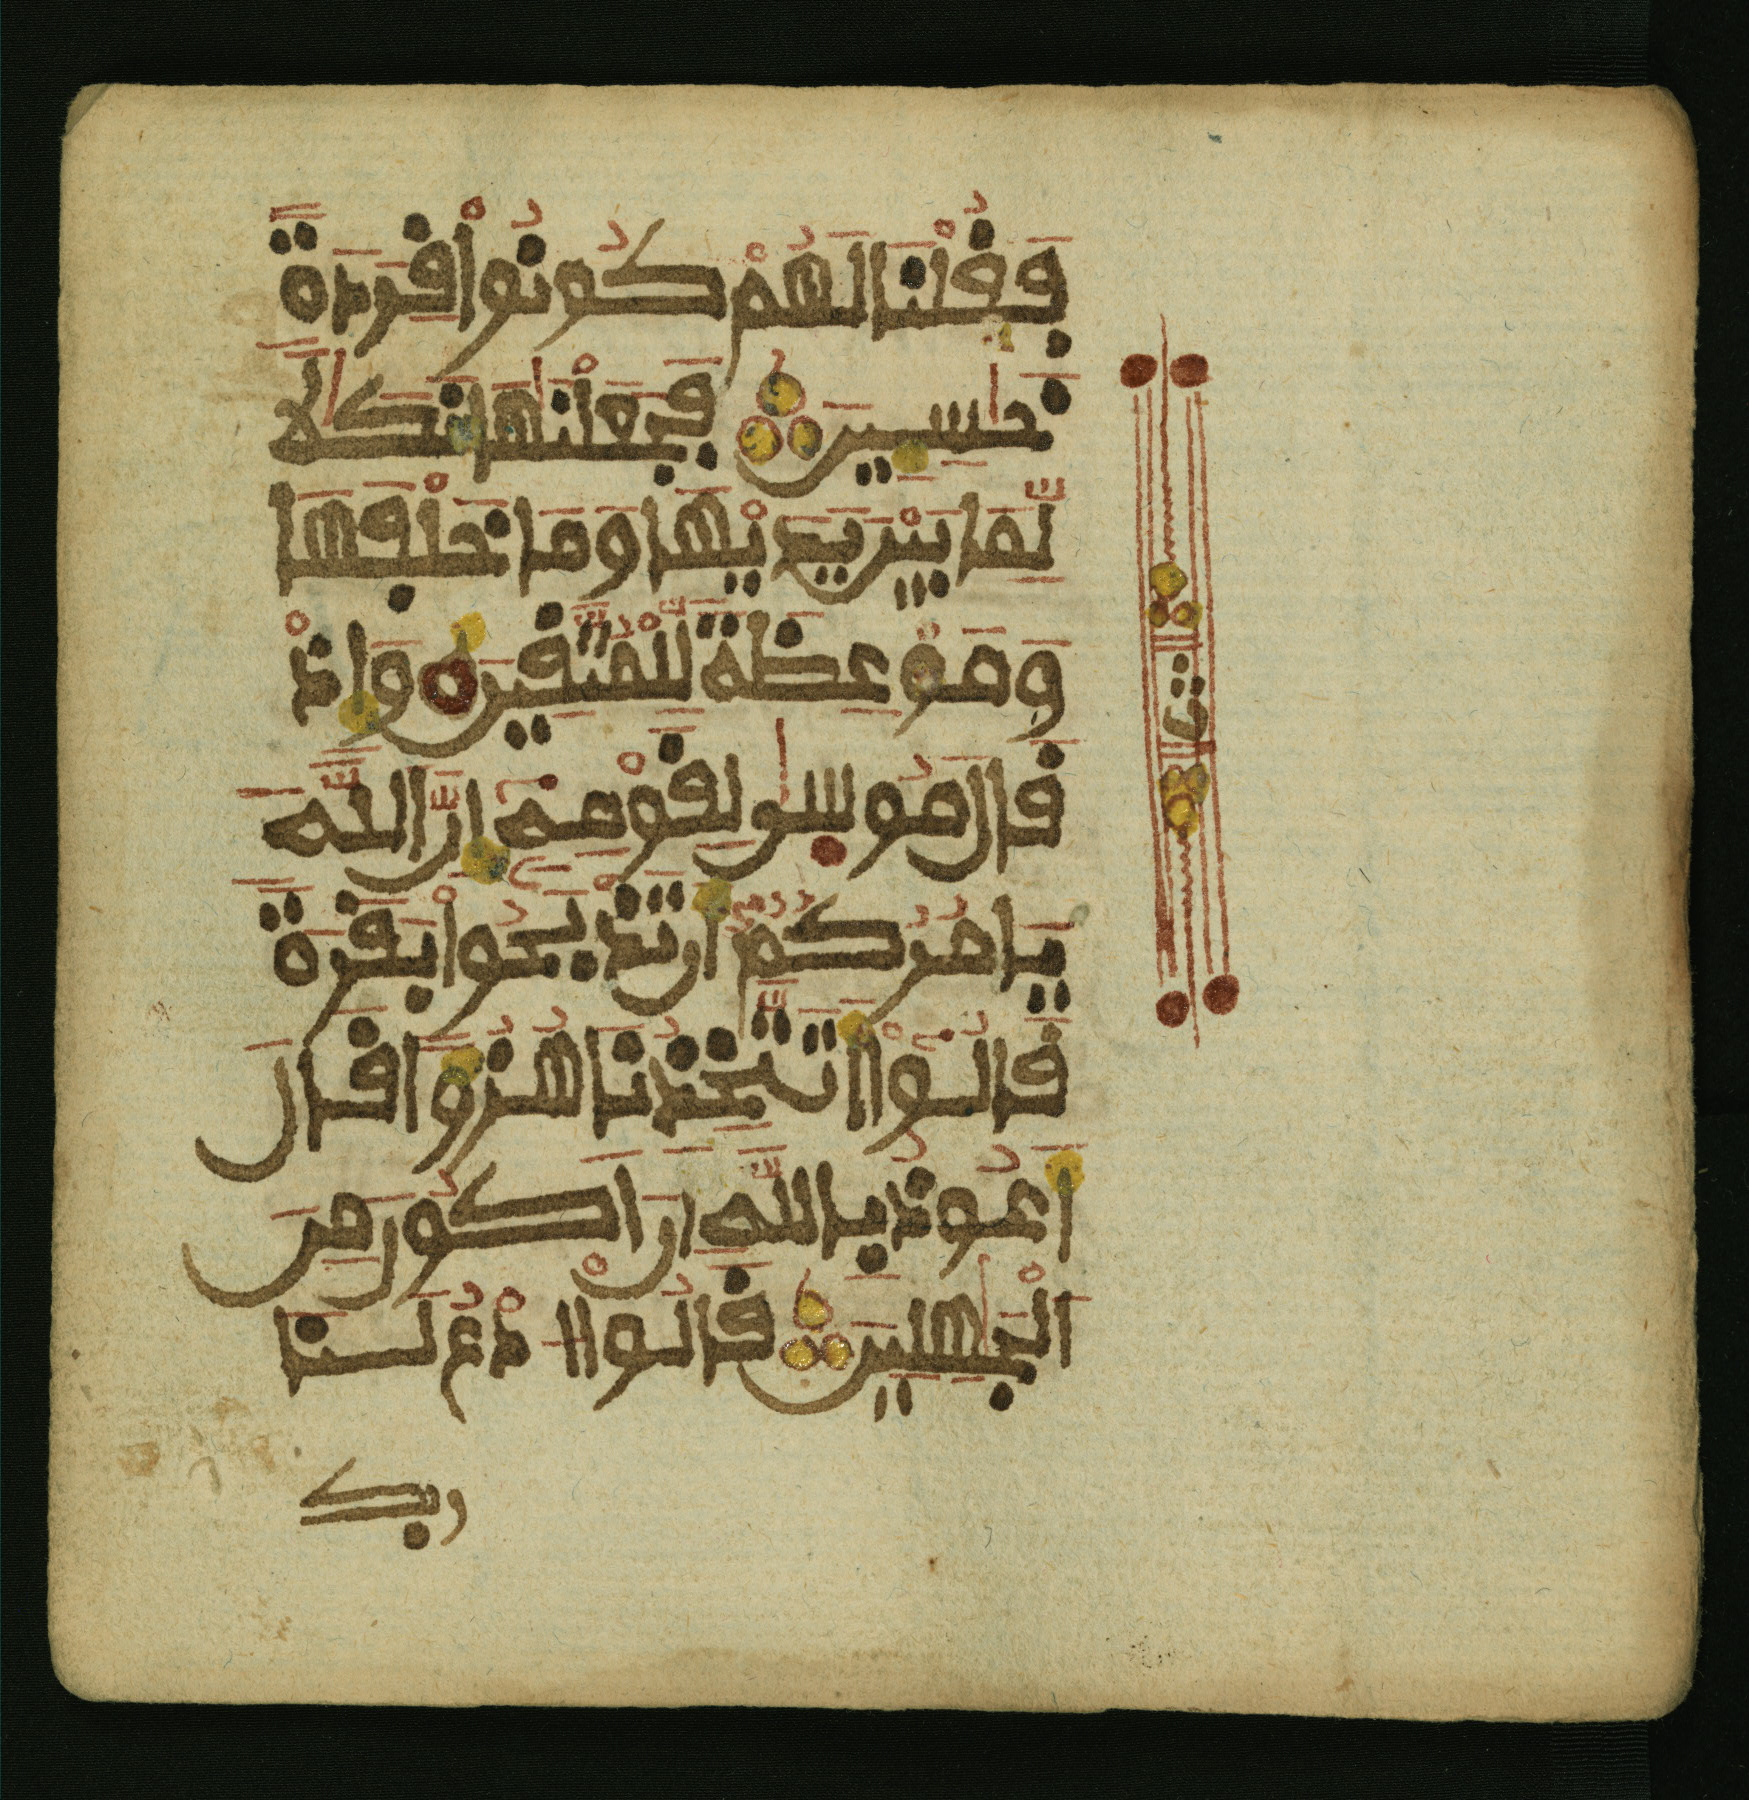 فَقُلْنَا لَهُمْ كُونُواْ قِرَدَةً
خَٰسِـِٕينَ فَجَعَلْنَٰهَا نَكَٰلًا
لِّمَا بَيْنَ يَدَيْهَا وَمَا خَلْفَهَا
وَمَوْعِظَةً لِّلْمُتَّقِينَ وَإِذْ
قَالَ مُوسَىٰ لِقَوْمِهِۦٓ إِنَّ اللَّهَ
يَامُرُكُمُۥٓ أَن تَذْبَحُواْ بَقَرَةً
قَالُوٓاْ أَتَتَّخِذُنَا هُزُؤًا قَالَ
أَعُوذُ بِاللَّهِ أَنْ أَكُونَ مِنَ
الْجَٰهِلِينَ قَالُواْ ادْعُ لَنَا
ربك